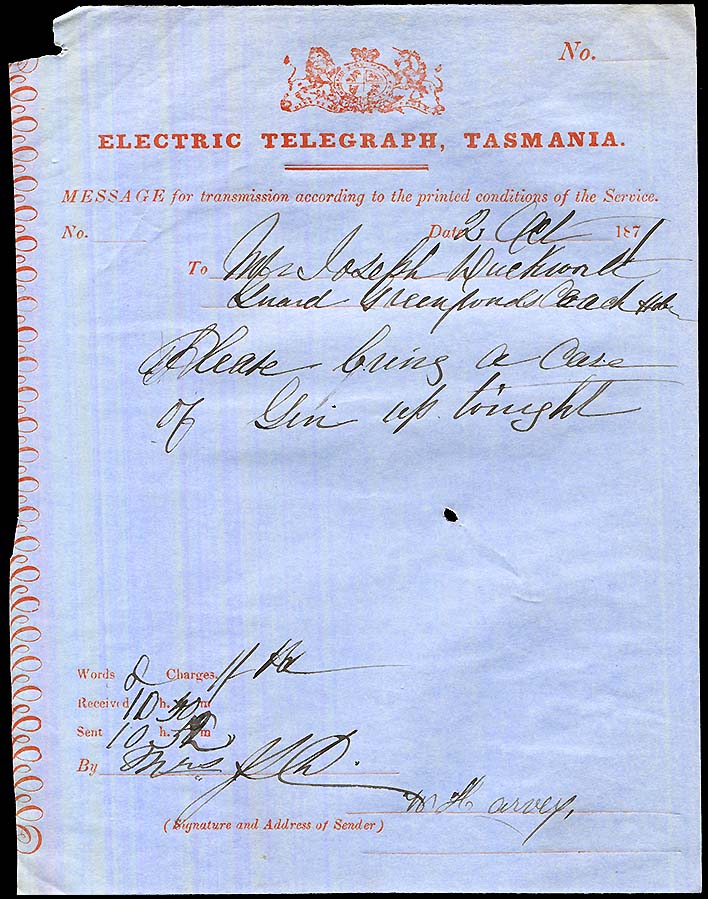 No.
ELECTRIC TELEGRAPH, TASMANIA.
MESSAGE for transmission according to the printed conditions of the Service.
No. Date 2 Oct 1871
To Mr Joseph Duckworth
Guard Greenponds Coach Hob
Please bring a case
of Gin up tonight
Words 8 Charges. 1/
Received 10 h. 30 m
Sent 10 h. 32 m
By Mrs
W Harvey,
(Signature and Address of Sender)